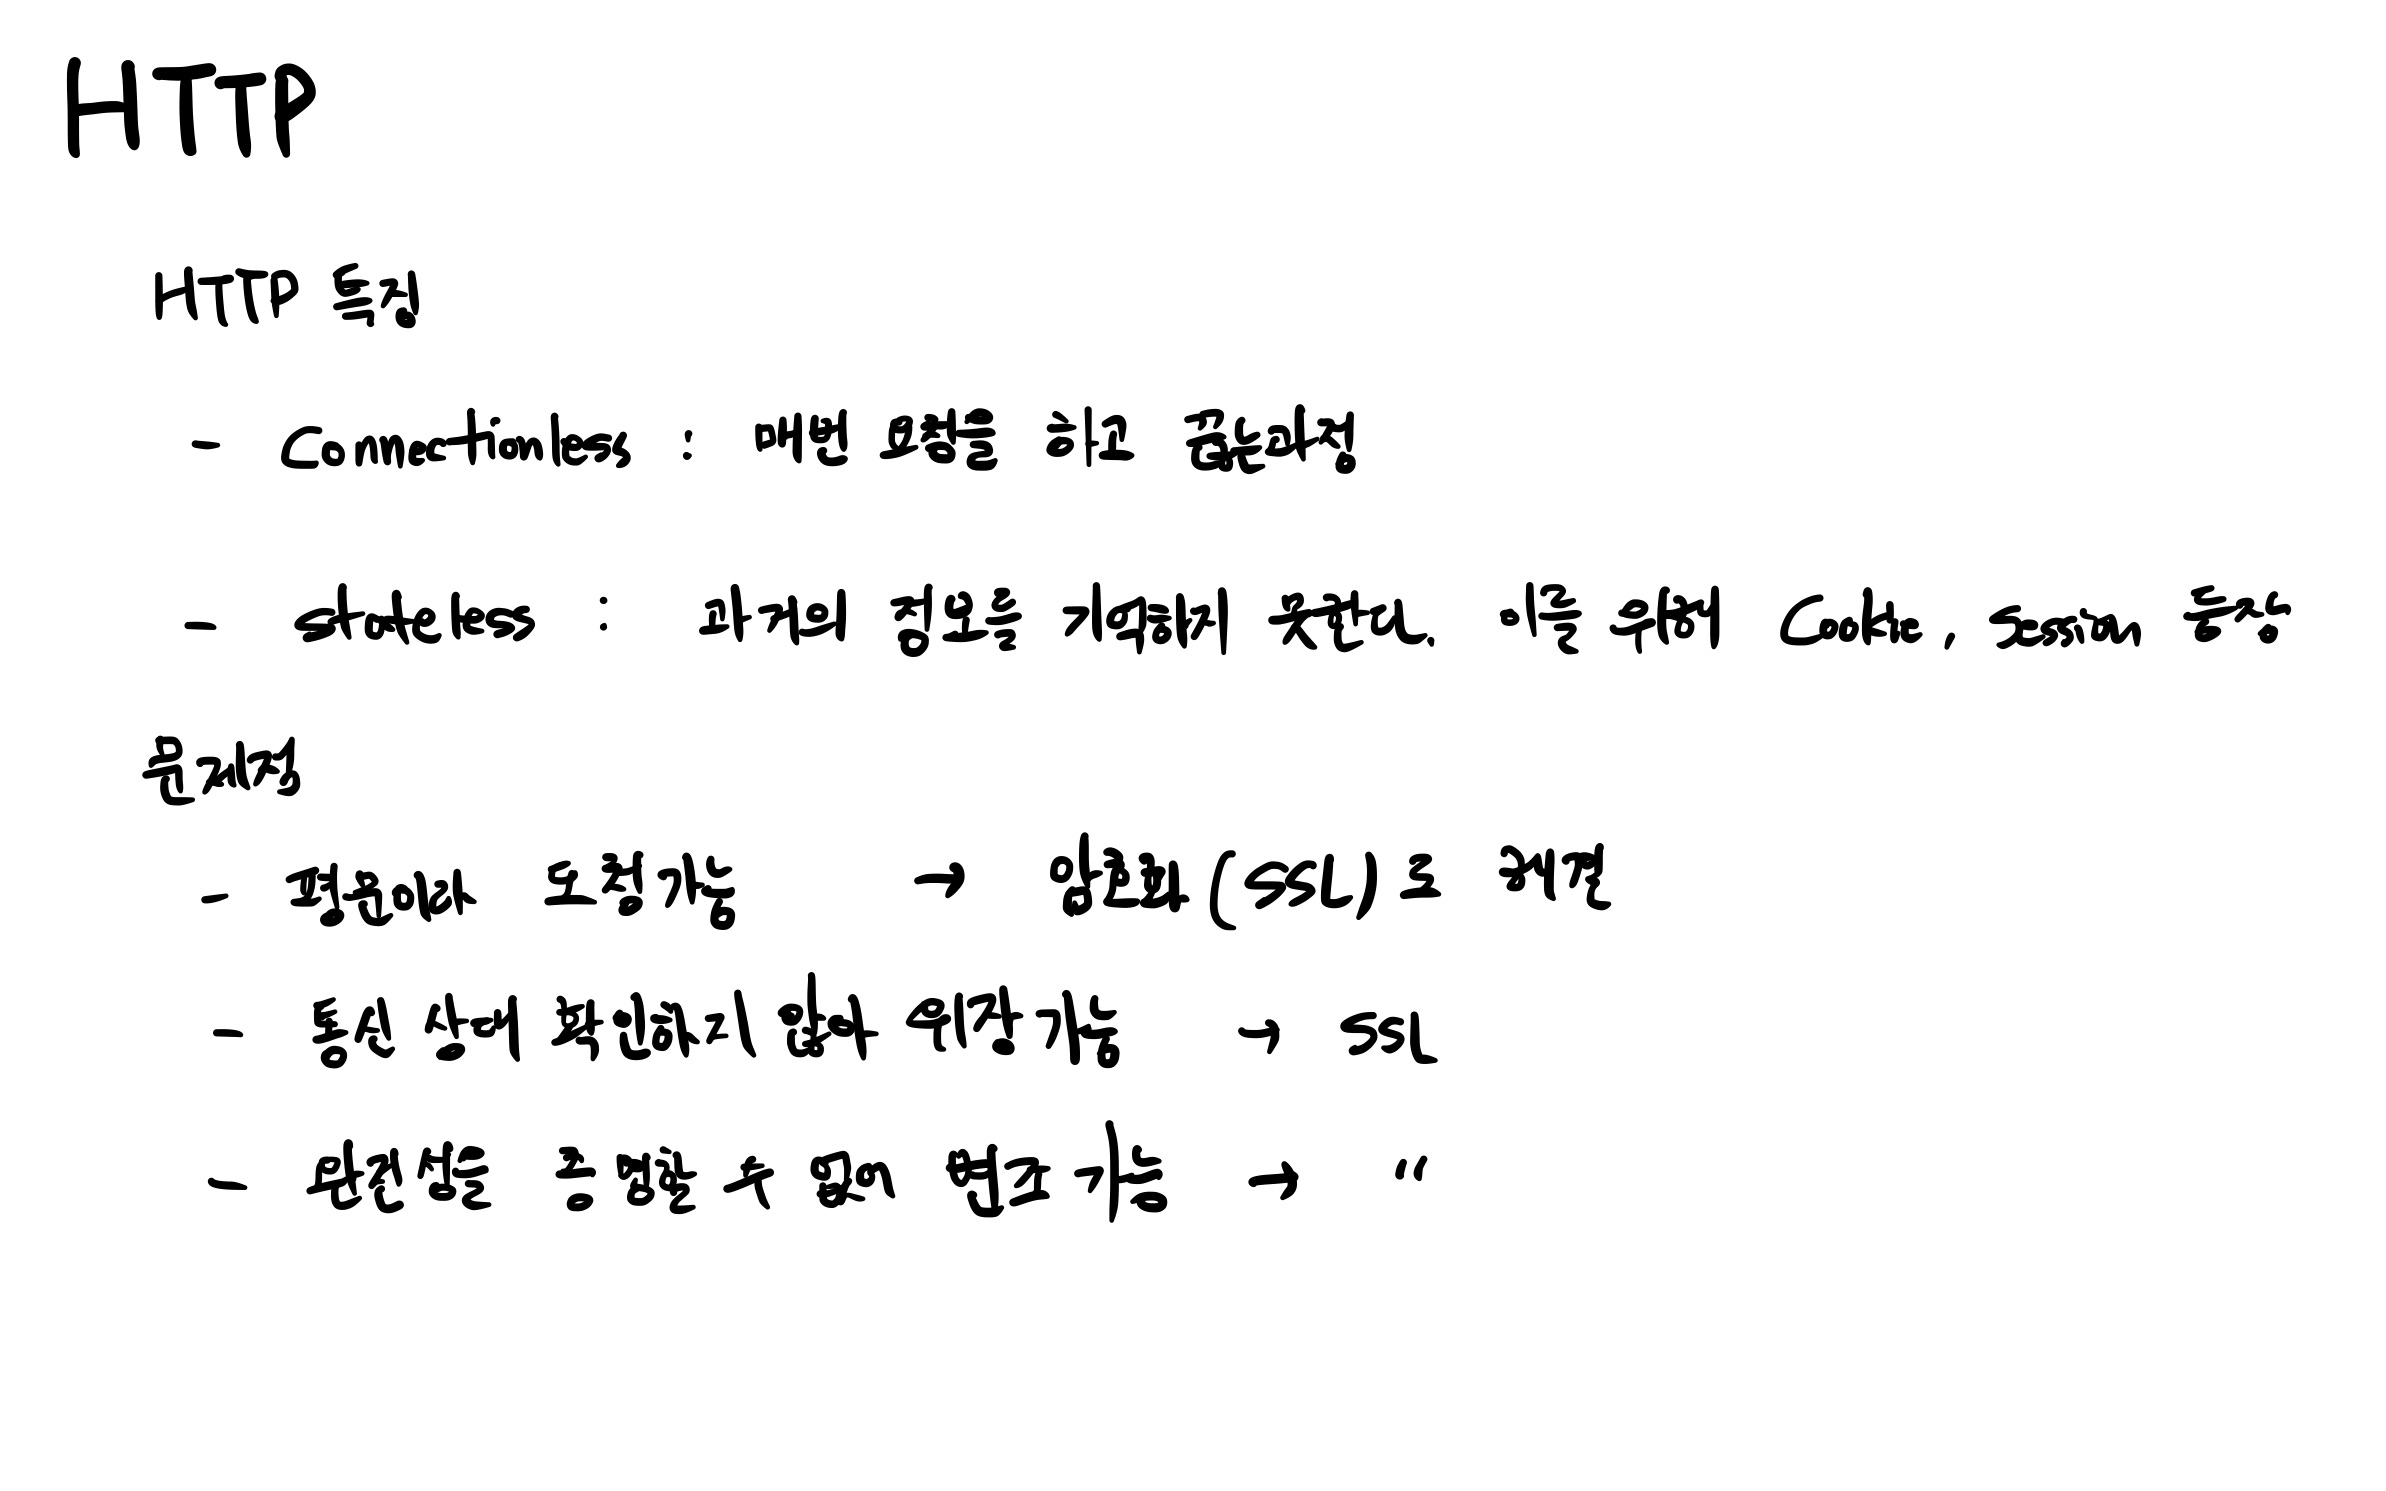 HTTP
HTTP 특징
- Connectionless : 매번 요청을 하고 끊는 과정
- stateless : 과거의 정보를 기억하지 못한다. 이를 위해 Cookie, Session 등장
문제점
- 평문에서 도청가능 → 암호화(SSL)로 해결
- 통신 상대 확인하지 않아 위장 가능 → SSL
- 완전성을 증명할 수 없어 변조 가능 → "